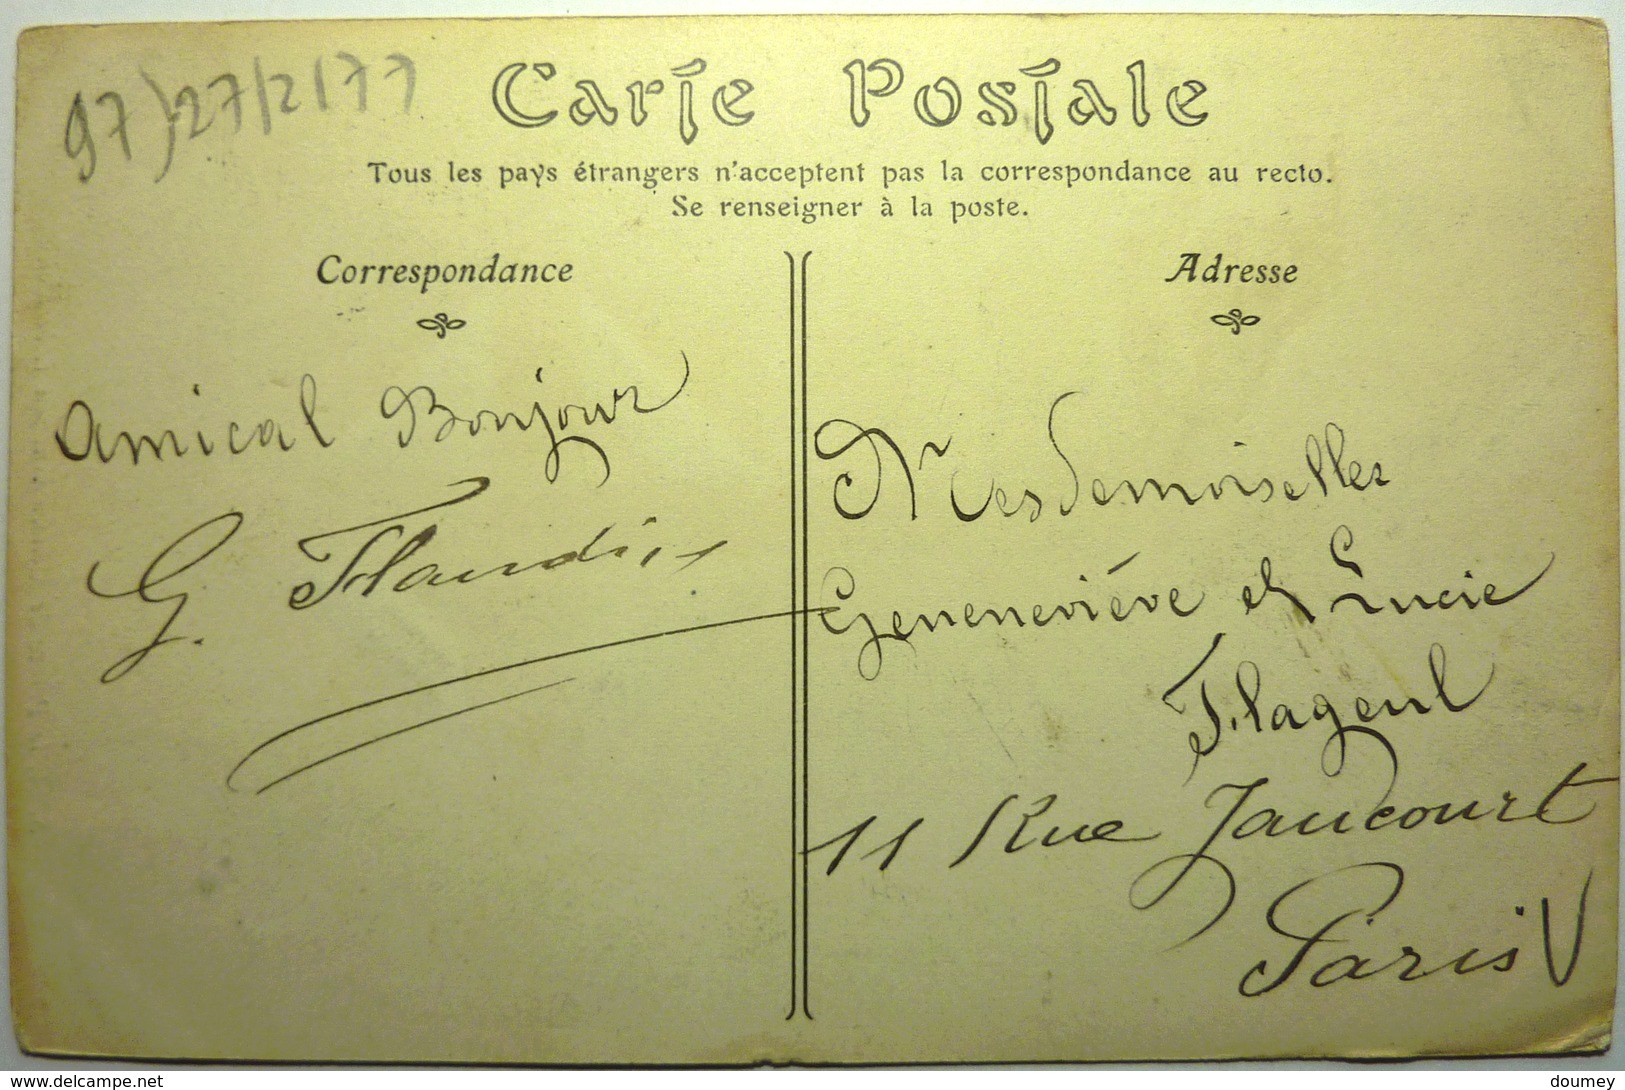 97) 27/2/77
Carte Postale
Tous les pays étrangers n'acceptent pas la correspondance au recto.
Se renseigner à la poste.
Correspondance
Adresse
Amical Bonjour
G. Flandin
Mesdemoiselles
Geneneviève et Lucie
Flageul
11 Rue Jaucourt
Paris V
www.delcampe.net
doumey